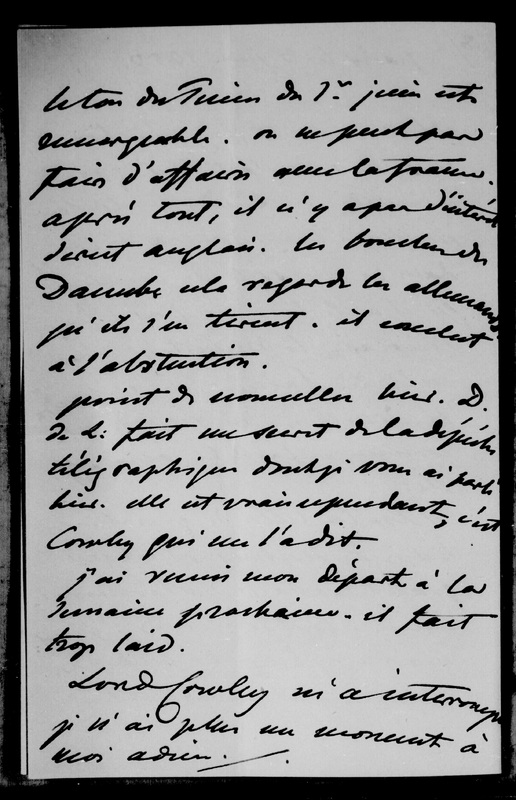 le ton du Times du 1er juin est
remarquable. on ne peut pas
faire d'affaires avec la france.
après tout, il n'y a pas d'intérêt
direct anglais. les bouches du
Danube cela regarde les allemands
qu'ils s'en tirent. il conclut
à l'abstention.
point de nouvelles hier. D.
de L: fait un secret de la dépêche
télégraphique dont je vous ai parlé
hier. elle est vraie cependant, c'est
Cowley qui me l'a dit.
j'ai remis mon départ à la
semaine prochaine. il fait
trop laid.
Lord Cowley m'a interrompu
je n'ai plus un moment à
moi adieu.